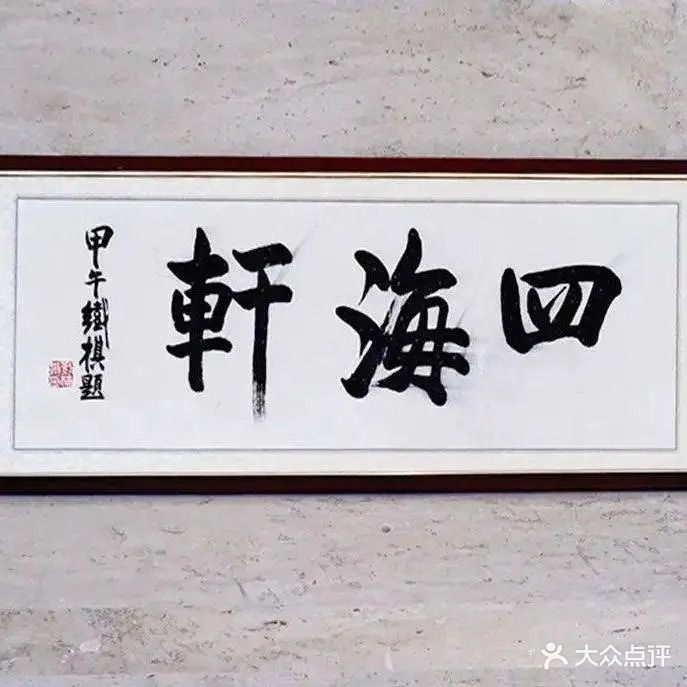 四海軒
甲午鐵棋題
大众点评